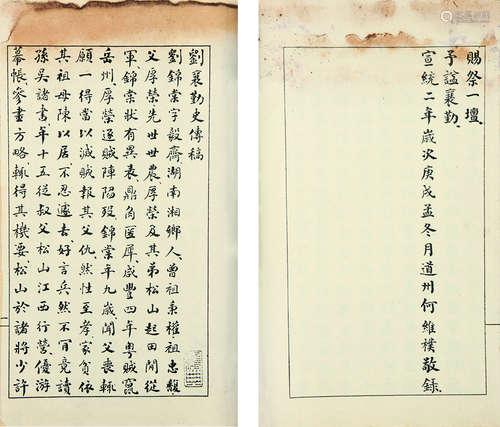 劉襄勤史傳稿
劉錦棠字毅齋湖南湘鄉人曾祖秉權祖忠馥
父厚榮先世世農厚榮及其弟松山起田間從
軍錦棠狀有異表鼎角匿犀咸豐四年粵賊竄
岳州厚榮逐賊陳陷歿錦棠年九歲聞父喪輒
願一得當以滅賊報其父仇然性至孝家貧依
其祖母陳以居不忍遽去好言兵然不肎竟讀
孫吳諸書年十五從叔父松山江西行營優游
幕帳參畫方略輒得其機要松山於諸將少許
賜祭一壇
予諡襄勤
宣統二年歲次庚戌孟冬月道州何維樸敬錄